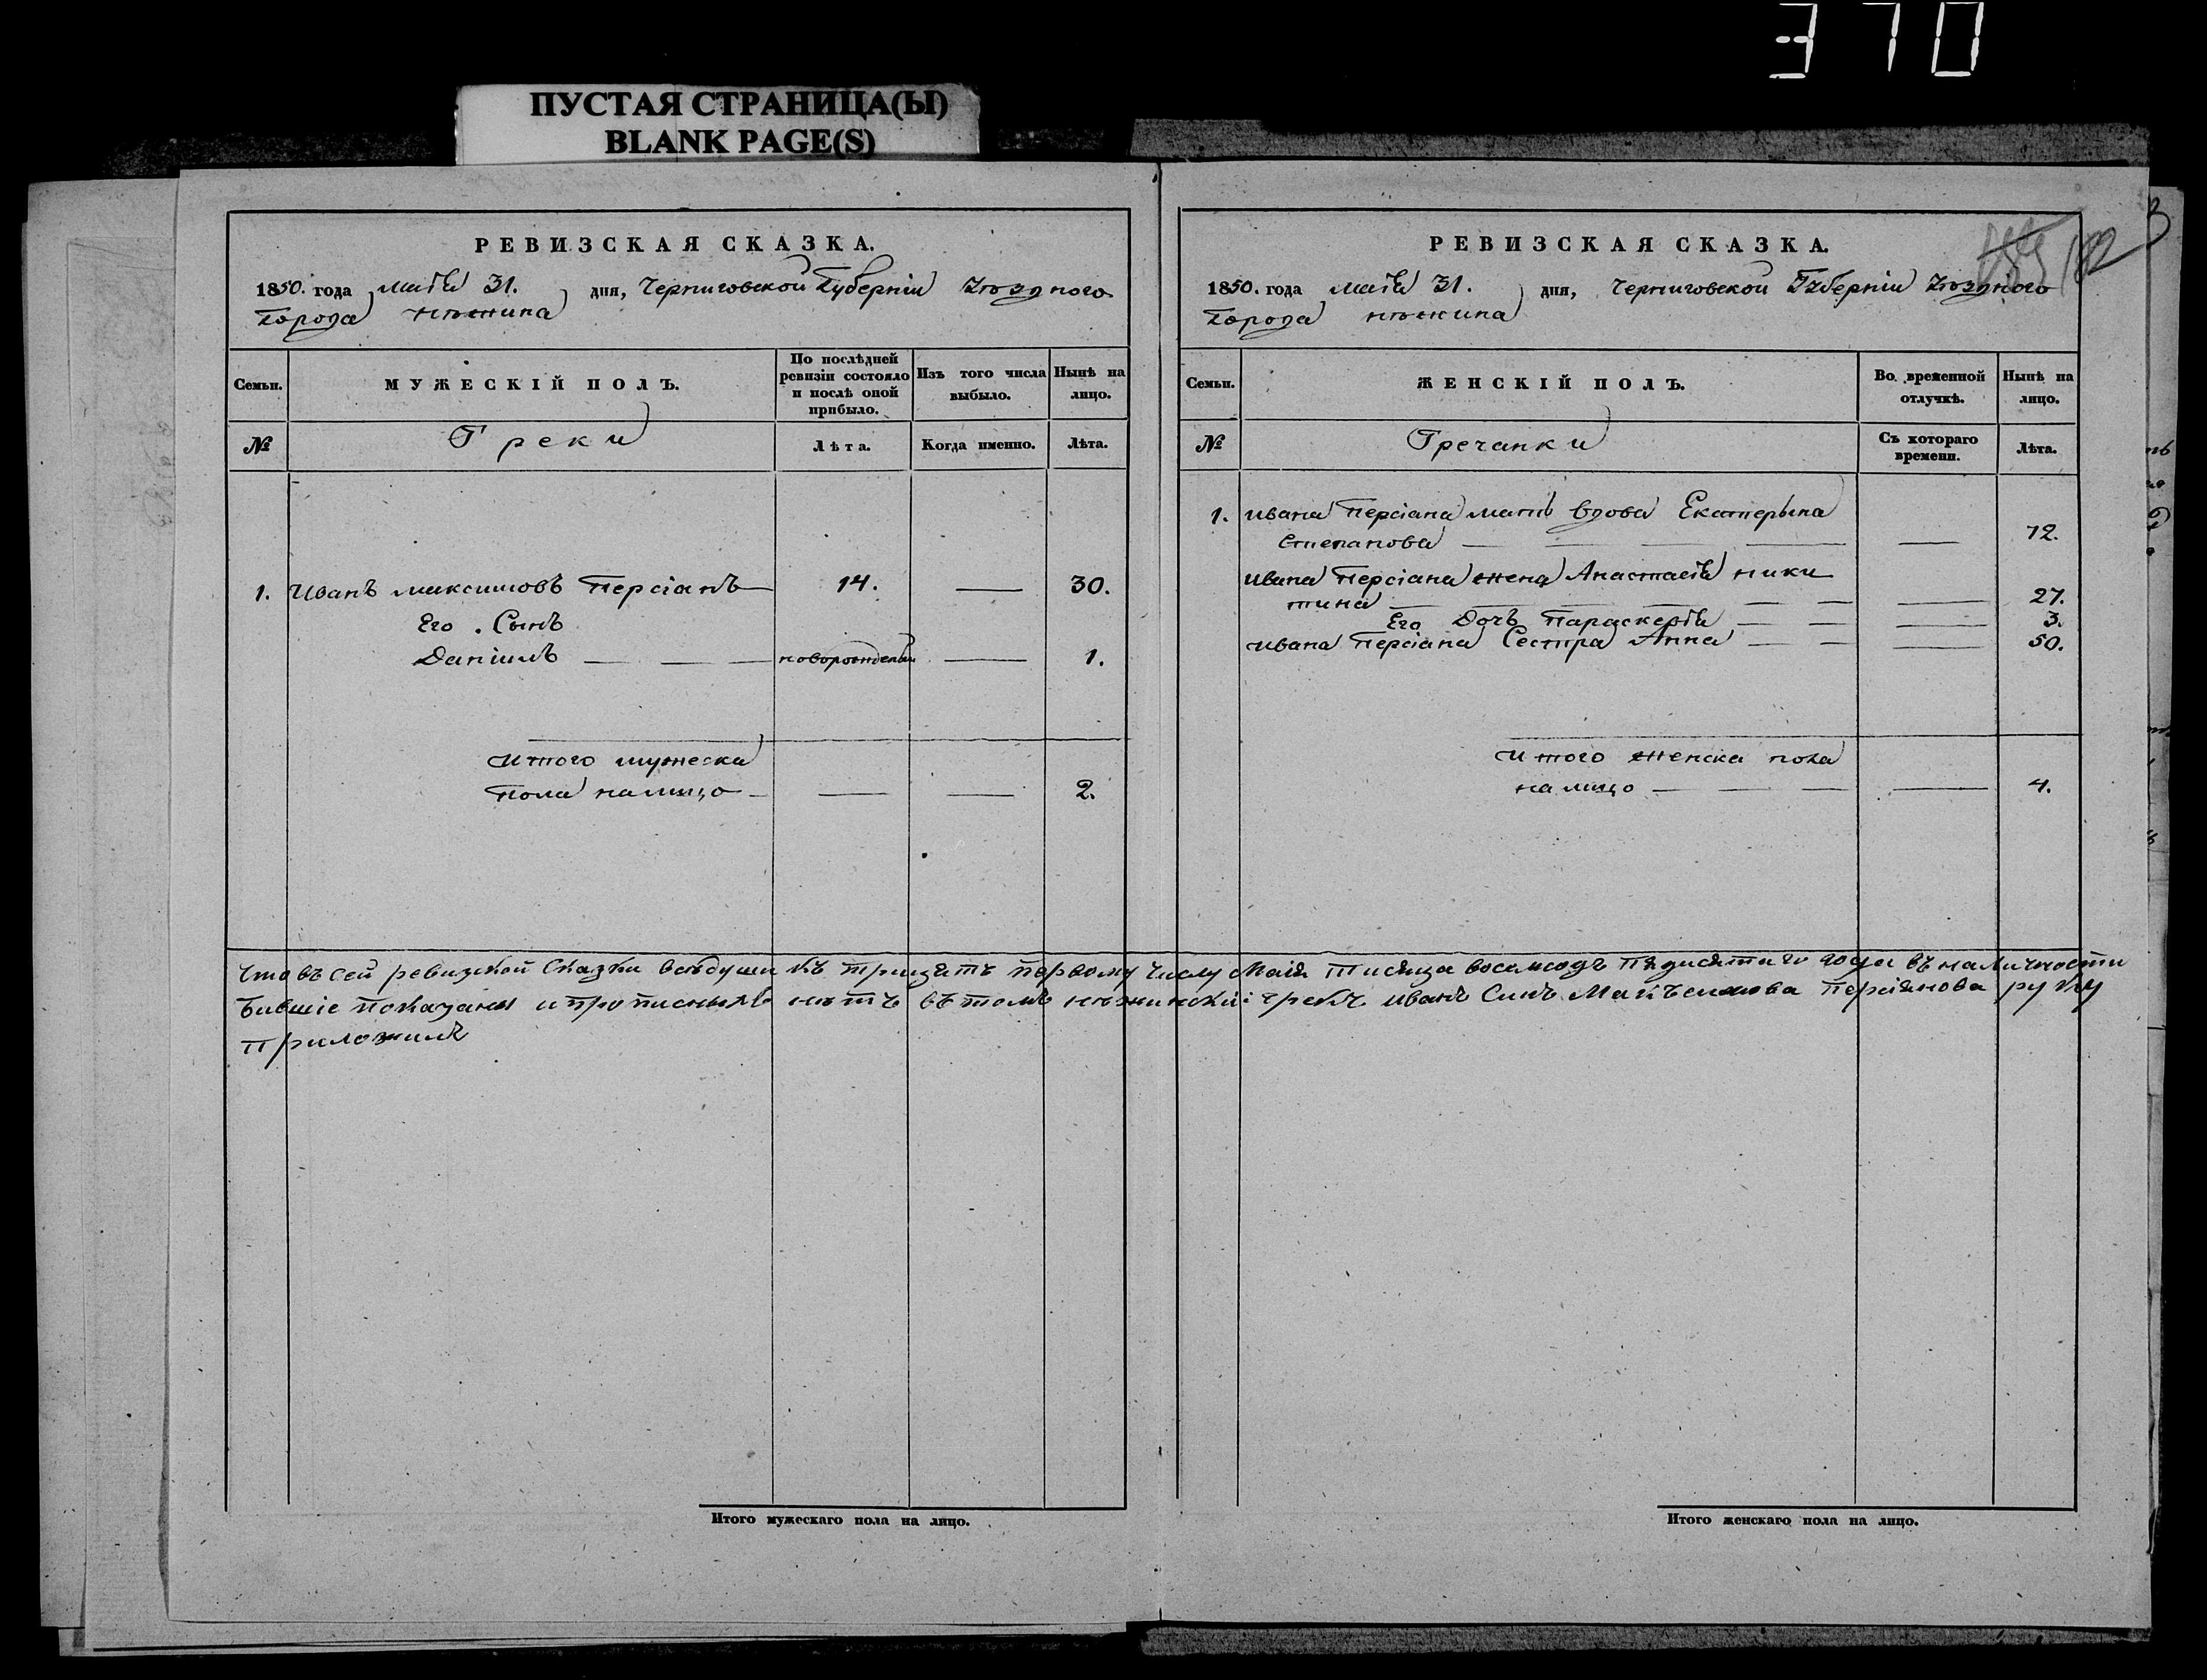 370
ПУСТАЯ СТРАНИЦА(Ы)
BLANK PAGE(S)
РЕВИЗСКАЯ СКАЗКА.
1850. года маія 31. дня, Черниговской Губерніи Уѣзднаго
Города Нѣжина
Семьи.
МУЖЕСКІЙ ПОЛЪ.
По послѣдней ревизіи состояло и послѣ оной прибыло.
Изъ того числа выбыло.
Нынѣ на лицо.
№
Греки
Лѣта.
Когда именно.
Лѣта.
1. Иванъ максимовъ Персіанъ 14. — 30.
Его Сынъ
Даніилъ — — — новорожденый — 1.
Итого мужеска
пола налицо — — — 2.
Итого мужескаго пола на лицо.
РЕВИЗСКАЯ СКАЗКА.
182
1850. года маія 31. дня, Черниговской Губерніи Уѣзднаго
Города нѣжина
Семьи.
ЖЕНСКІЙ ПОЛЪ.
Во временной отлучкѣ.
Нынѣ на лицо.
№
Гречанки
Съ котораго времени.
Лѣта.
1. Ивана Персіана мать вдова Екатерына
Степанова — — — — — 72.
Ивана Персіана жена Анастасія ники
тина — — — — — 27.
Его Дочъ Параскевія — — — 3.
Ивана Персіана Сестра Анна — — — 50.
Итого женска пола
на лицо — — — — 4.
Что въ сей ревизкой Сказки всѣ души къ трицать первому числу Маія тисяща восамсодъ пядисятаго года въ наличности
бывшіе показаны и прописныхъ нѣтъ въ томъ нѣжинскій грекъ иванъ Синъ Персіянова руку
приложилъ
Итого женскаго пола на лицо.